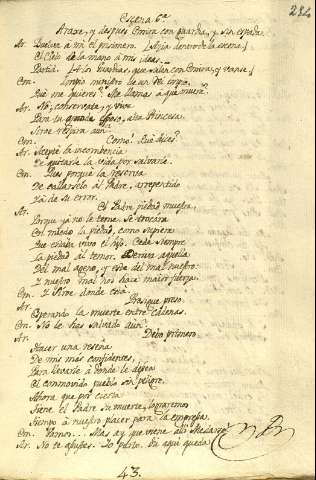 Escena 6ª
284
Arasse, y despues Emira con guardia, y sin espada.
Ar. Vuelve a mi el prisionero. [Azia dentro de la escena]
El Cielo de la mano à mis ideas.
Partid. [A los Guardias, que salen con Emira, y vanse.]
Em. Impio ministro de un Rei impio
Què me quieres? Me llamas à que muera?
Ar. No; conservate, y vive
Para tu esposo, alta Princesa.
Siroe respira aun.
Em. Como! Què dices?
Ar. Aceptè la incombencia
De quitarle la vida por salvarle.
Em. Pues porquè la reserva
De callarselo al Padre, arrepentido
Yà de su error.
Ar. El Padre piedad muestra,
Porque yà no le teme. Se trocára
En miedo la piedad, como supiera
Que estaba vivo el hijo. Cede siempre
La piedad al temor. aquella
Del mal ageno, y este del mal nuestro:
I nuestro mal nos hace maior fuerza.
Em. I Siroe donde està?
Ar. Prosigue preso,
Esperando la muerte entre cadenas.
Em. No le has salvado aun?
Ar. Debo primero
Hacer una reseña
De mis mas confidentes,
Para llevarle à donde le desea
El conmovido pueblo sin peligro.
Ahora que por cierta
Tiene el Padre su muerte, lograremos
Tiempo à nuestro placer para la empresa.
Em. Vamos... Mas ay que viene alli Medarse
Ar. No te asustes. Yo parto. Tù aqui queda.
43.